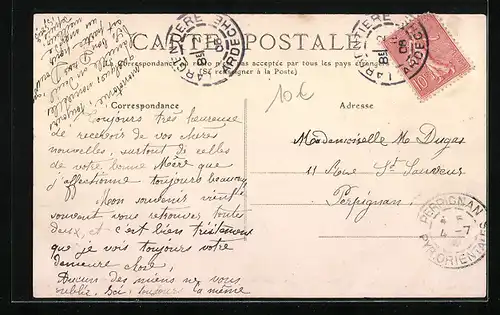 CARTE POSTALE
La Correspondance au recto n'est pas acceptée par tous les pays étrangers
(Se renseigner à la Poste)
ARGENTIERE
ARDECHE
ARGENTIERE
ARDECHE
10
10€
Correspondance
Toujours très heureuse
de recevoir de vos chères
nouvelles, surtout de celles
de votre bonne Mère que
j'affectionne toujours beaucoup
Mon souvenir vient
souvent vous retrouver toutes
deux, et c'est bien tristement
que je vois toujours votre
demeure close,
Aucun des miens ne vous
oublie. Ici toujours la même
Adresse
Mademoiselle M Dugas
11 Rue St Sauveur
Perpignan
PERPIGNAN
4 -7
PYR. ORIENTALES